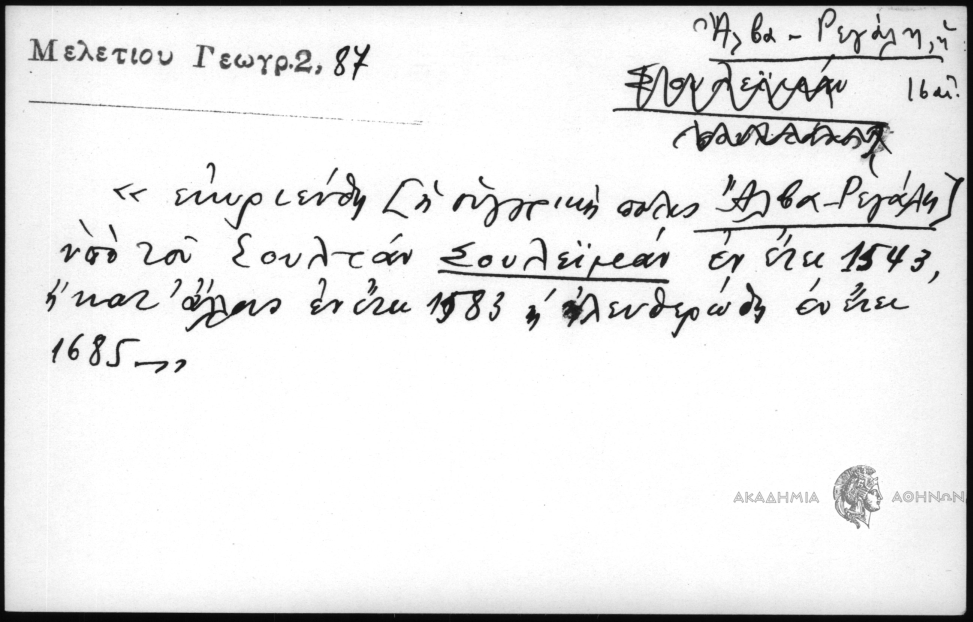 Μελετίου Γεωγρ.2, 87
Ἄλβα - Ρεγάλη, ἡ
16 αἰ.
« ἐκυριεύθη [ἡ οὑγγρικὴ πόλις Ἄλβα-Ρεγάλη]
ὑπὸ τοῦ Σουλτὰν Σουλεϊμὰν ἐν ἔτει 1543,
ἢ κατ' ἄλλους ἐν ἔτει 1583 ἠλευθερώθη ἐν ἔτει
1685—»
ΑΚΑΔΗΜΙΑ ΑΘΗΝΩΝ